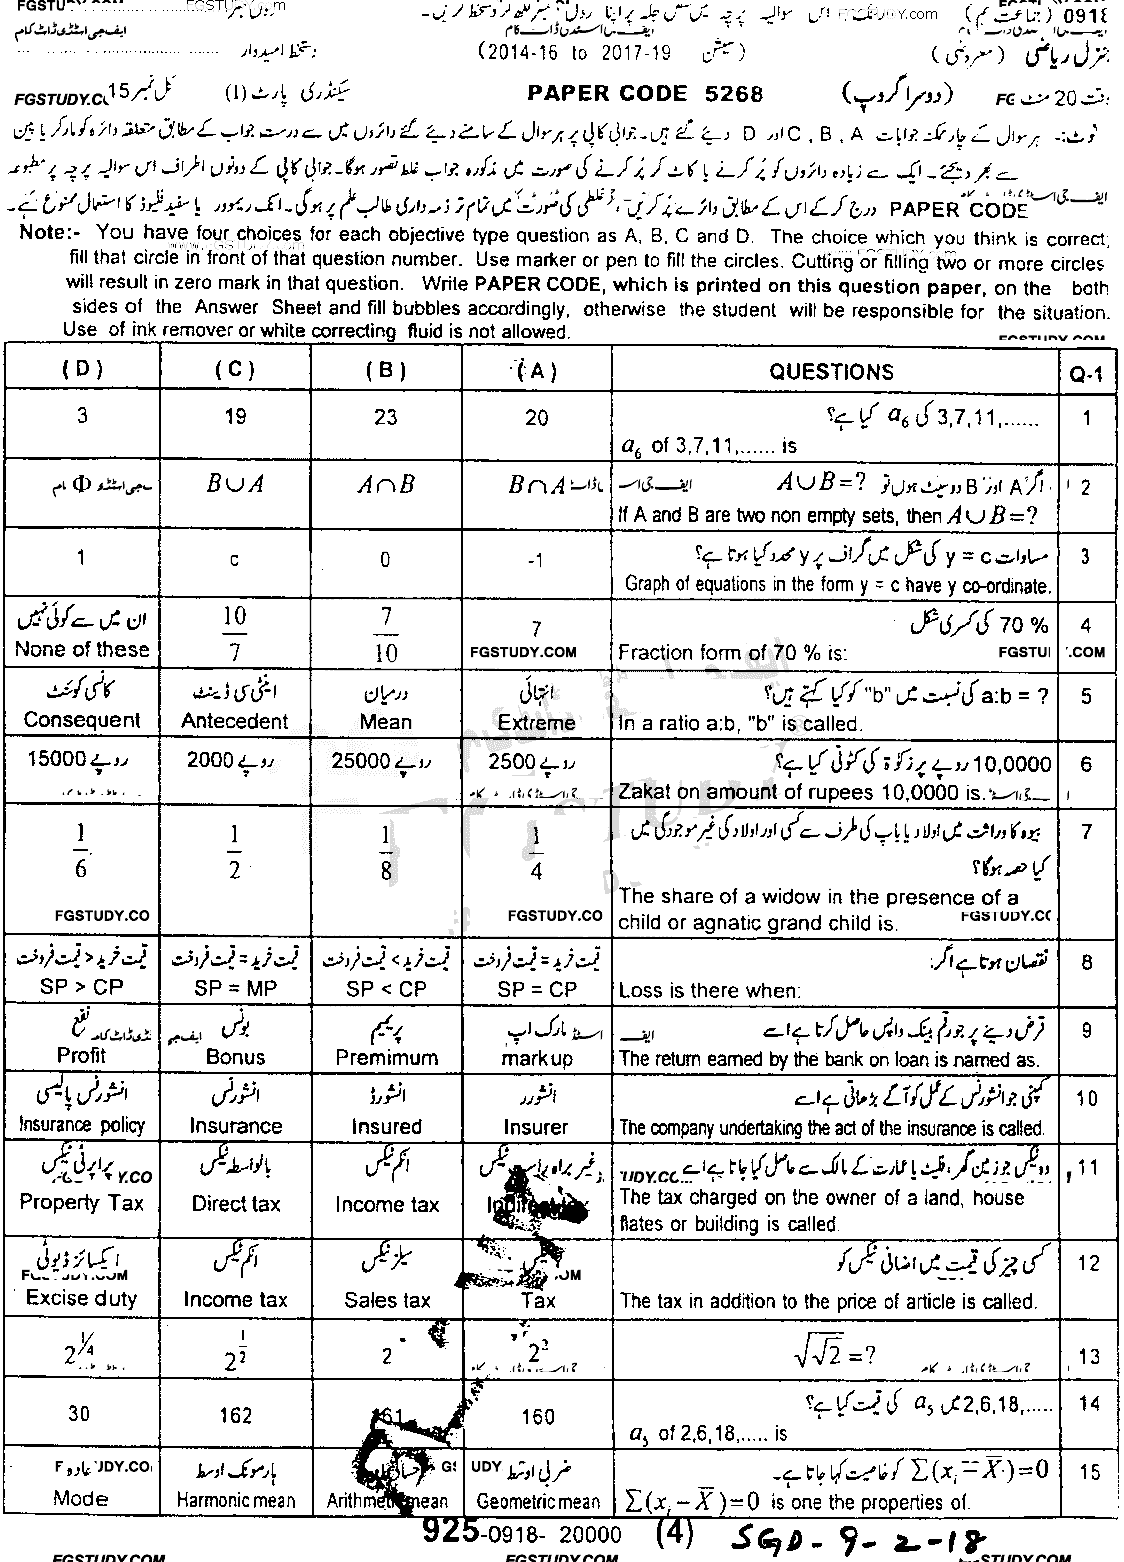 0918 (جماعت نہم)
جنرل ریاضی (معروضی) (سیشن 2014-16 to 2017-19) دستخط امیدوار
وقت 20 منٹ (دوسرا گروپ) PAPER CODE 5268 سیکنڈری پارٹ (I) کل نمبر 15
FGSTUDY.CO
نوٹ:- ہر سوال کے چار ممکنہ جوابات A ، B ، C اور D دیئے گئے ہیں۔ جوابی کاپی پر ہر سوال کے سامنے دیئے گئے دائروں میں سے درست جواب کے مطابق متعلقہ دائرہ کو مارکر یا پین
سے بھر دیجئے۔ ایک سے زیادہ دائروں کو پُر کرنے یا کاٹ کر پُر کرنے کی صورت میں مذکورہ جواب غلط تصور ہوگا۔ جوابی کاپی کے دونوں اطراف اس سوالیہ پرچہ پر مطبوعہ
PAPER CODE درج کر کے اس کے مطابق دائرے پُر کریں، غلطی کی صورت میں تمام تر ذمہ داری طالب علم پر ہوگی۔ انک ریموور یا سفید فلیوڈ کا استعمال ممنوع ہے۔
Note:- You have four choices for each objective type question as A, B, C and D. The choice which you think is correct;
fill that circle in front of that question number. Use marker or pen to fill the circles. Cutting or filling two or more circles
will result in zero mark in that question. Write PAPER CODE, which is printed on this question paper, on the both
sides of the Answer Sheet and fill bubbles accordingly, otherwise the student will be responsible for the situation.
Use of ink remover or white correcting fluid is not allowed.
(D) (C) (B) (A) QUESTIONS Q-1
3 19 23 20 3,7,11,...... کی a₆ کیا ہے؟ 1
a₆ of 3,7,11,...... is
Φ B∪A A∩B B∩A اگر A اور B دو سیٹ ہوں تو A∪B=? 2
If A and B are two non empty sets, then A∪B=?
1 c 0 -1 مساوات y = c کی شکل میں گراف پر y محدد کیا ہوتا ہے؟ 3
Graph of equations in the form y = c have y co-ordinate.
ان میں سے کوئی نہیں 10/7 7/10 7 70 % کی کسری شکل 4
None of these FGSTUDY.COM Fraction form of 70 % is:
کانسی کوئنٹ اینٹی سی ڈینٹ درمیان انتہائی a:b = ? کی نسبت میں "b" کو کیا کہتے ہیں؟ 5
Consequent Antecedent Mean Extreme In a ratio a:b, "b" is called.
15000 روپے 2000 روپے 25000 روپے 2500 روپے 10,0000 روپے پر زکوٰۃ کی کٹوتی کیا ہے؟ 6
Zakat on amount of rupees 10,0000 is.
1/6 1/2 1/8 1/4 بیوہ کا وراثت میں اولاد یا باپ کی طرف سے کسی اور اولاد کی غیر موجودگی میں 7
کیا حصہ ہوگا؟
The share of a widow in the presence of a
child or agnatic grand child is.
FGSTUDY.CO FGSTUDY.CO FGSTUDY.CO
قیمت خرید > قیمت فروخت قیمت خرید = قیمت فروخت قیمت خرید < قیمت فروخت قیمت خرید = قیمت فروخت نقصان ہوتا ہے اگر: 8
SP > CP SP = MP SP < CP SP = CP Loss is there when:
نفع بونس پریمیم مارک اپ قرض دینے پر جو رقم بینک واپس حاصل کرتا ہے اسے 9
Profit Bonus Premimum mark up The return earned by the bank on loan is named as.
انشورنس پالیسی انشورنس انشورڈ انشورر کمپنی جو انشورنس کے عمل کو آگے بڑھاتی ہے اسے 10
Insurance policy Insurance Insured Insurer The company undertaking the act of the insurance is called.
پراپرٹی ٹیکس بالواسطہ ٹیکس انکم ٹیکس غیر براہ راست ٹیکس وہ ٹیکس جو زمین گھر، فلیٹ یا عمارت کے مالک سے حاصل کیا جاتا ہے اسے 11
Property Tax Direct tax Income tax The tax charged on the owner of a land, house
flates or building is called.
ایکسائز ڈیوٹی انکم ٹیکس سیلز ٹیکس ٹیکس کسی چیز کی قیمت میں اضافی ٹیکس کو 12
Excise duty Income tax Sales tax Tax The tax in addition to the price of article is called.
2^¼ 2^½ 2 2² √√2 =? 13
30 162 161 160 2,6,18,..... میں a₅ کی قیمت کیا ہے؟ 14
a₅ of 2,6,18,..... is
ہارمونک اوسط ضربی اوسط Σ(xᵢ − X̄)=0 کو خاصیت کہا جاتا ہے۔ 15
Mode Harmonic mean Arithmetic mean Geometric mean Σ(xᵢ − X̄)=0 is one the properties of.
925-0918- 20000 (4) SGD-9-2-18
FGSTUDY.COM FGSTUDY.COM STUDY.COM